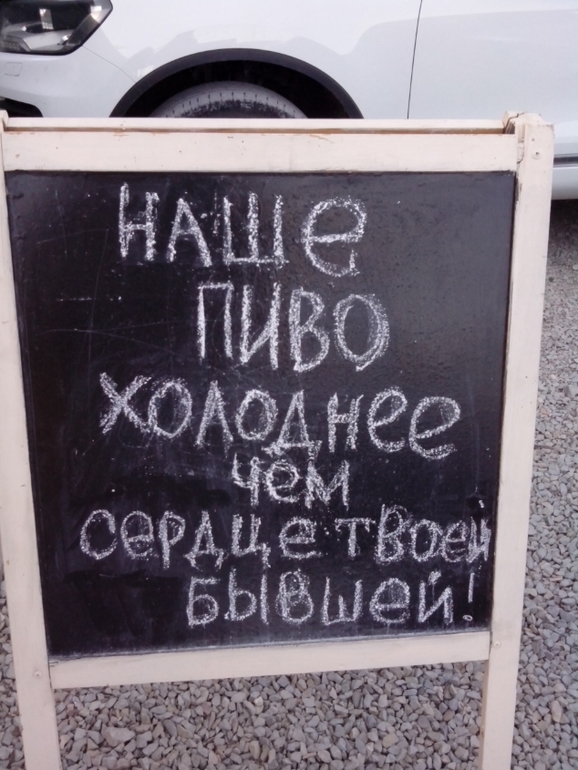 НАШЕ
ПИВО
ХОЛОДНЕЕ
ЧЕМ
СЕРДЦЕ ТВОЕЙ
БЫВШЕЙ!